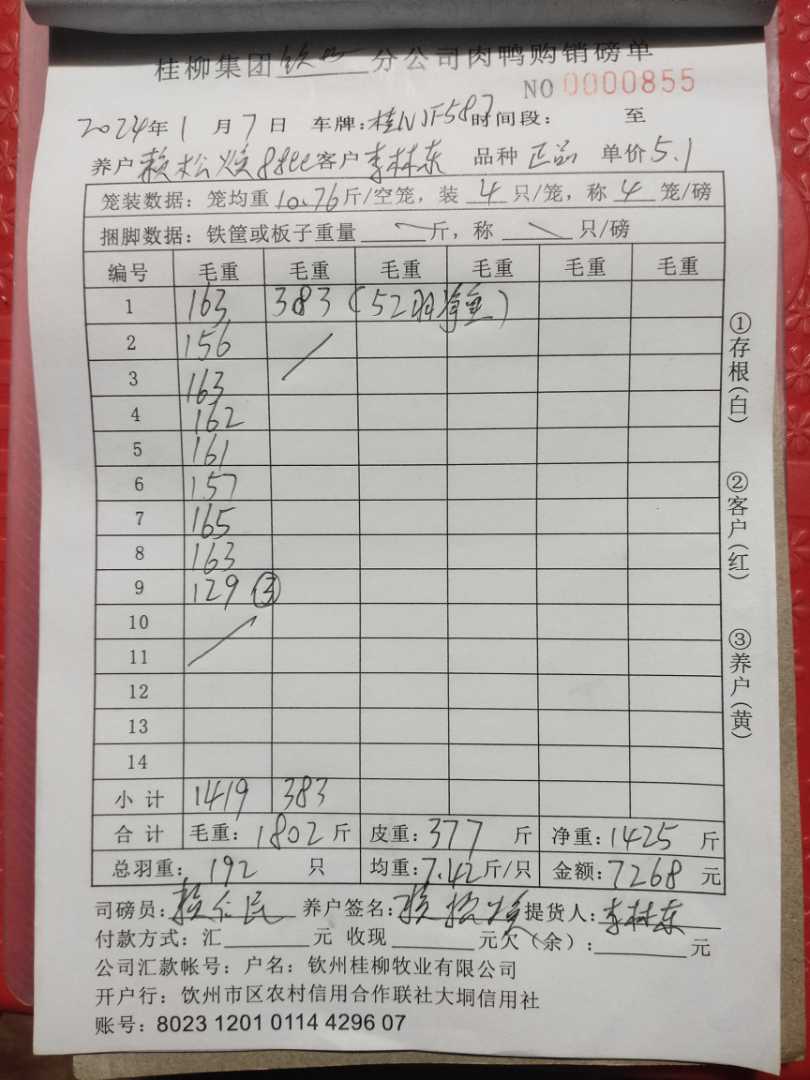 桂柳集团钦州分公司肉鸭购销磅单
NO 0000855
2024年1月7日 车牌:桂NJF587时间段: 至
养户赖松焕 客户李林东 品种正品 单价5.1
笼装数据:笼均重10.76斤/空笼,装4只/笼,称4笼/磅
捆脚数据:铁筐或板子重量 斤,称 只/磅
编号 毛重 毛重 毛重 毛重 毛重 毛重
1 163 383(52羽净重)
2 156
3 163
4 162
5 161
6 157
7 165
8 163
9 129 ③
10
11
12
13
14
小计 1419 383
合计 毛重:1802斤 皮重:377斤 净重:1425斤
总羽重:192只 均重:7.42斤/只 金额:7268元
司磅员:赖仁民 养户签名:赖松焕 提货人:李林东
付款方式:汇 元 收现 元欠(余): 元
公司汇款帐号:户名:钦州桂柳牧业有限公司
开户行:钦州市区农村信用合作联社大垌信用社
账号:8023 1201 0114 4296 07
①存根(白)
②客户(红)
③养户(黄)